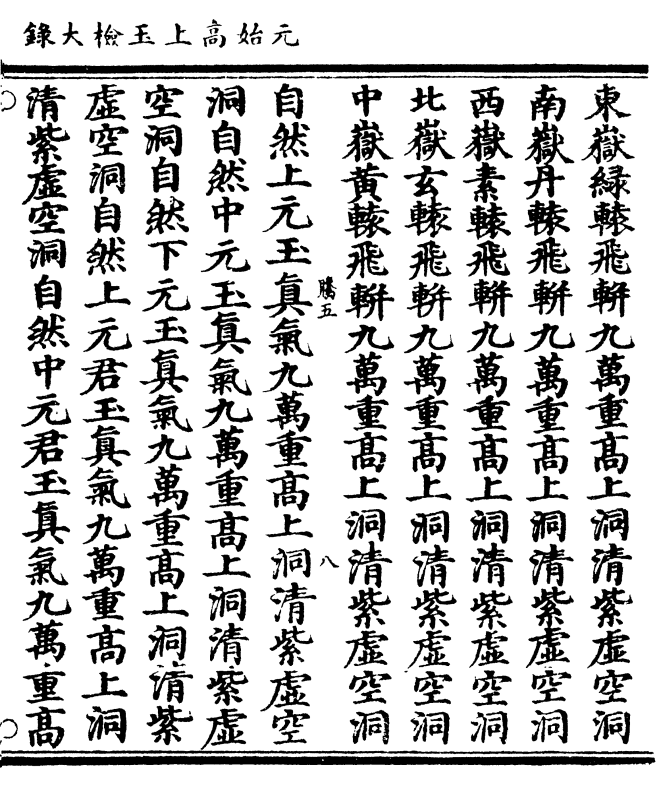 元始高上玉檢大錄
東嶽綠轅飛軿九萬重高上洞清紫虛空洞
南嶽丹轅飛軿九萬重高上洞清紫虛空洞
西嶽素轅飛軿九萬重高上洞清紫虛空洞
北嶽玄轅飛軿九萬重高上洞清紫虛空洞
中嶽黃轅飛軿九萬重高上洞清紫虛空洞
騰五 八
自然上元玉真氣九萬重高上洞清紫虛空
洞自然中元玉真氣九萬重高上洞清紫虛
空洞自然下元玉真氣九萬重高上洞清紫
虛空洞自然上元君玉真氣九萬重高上洞
清紫虛空洞自然中元君玉真氣九萬重高